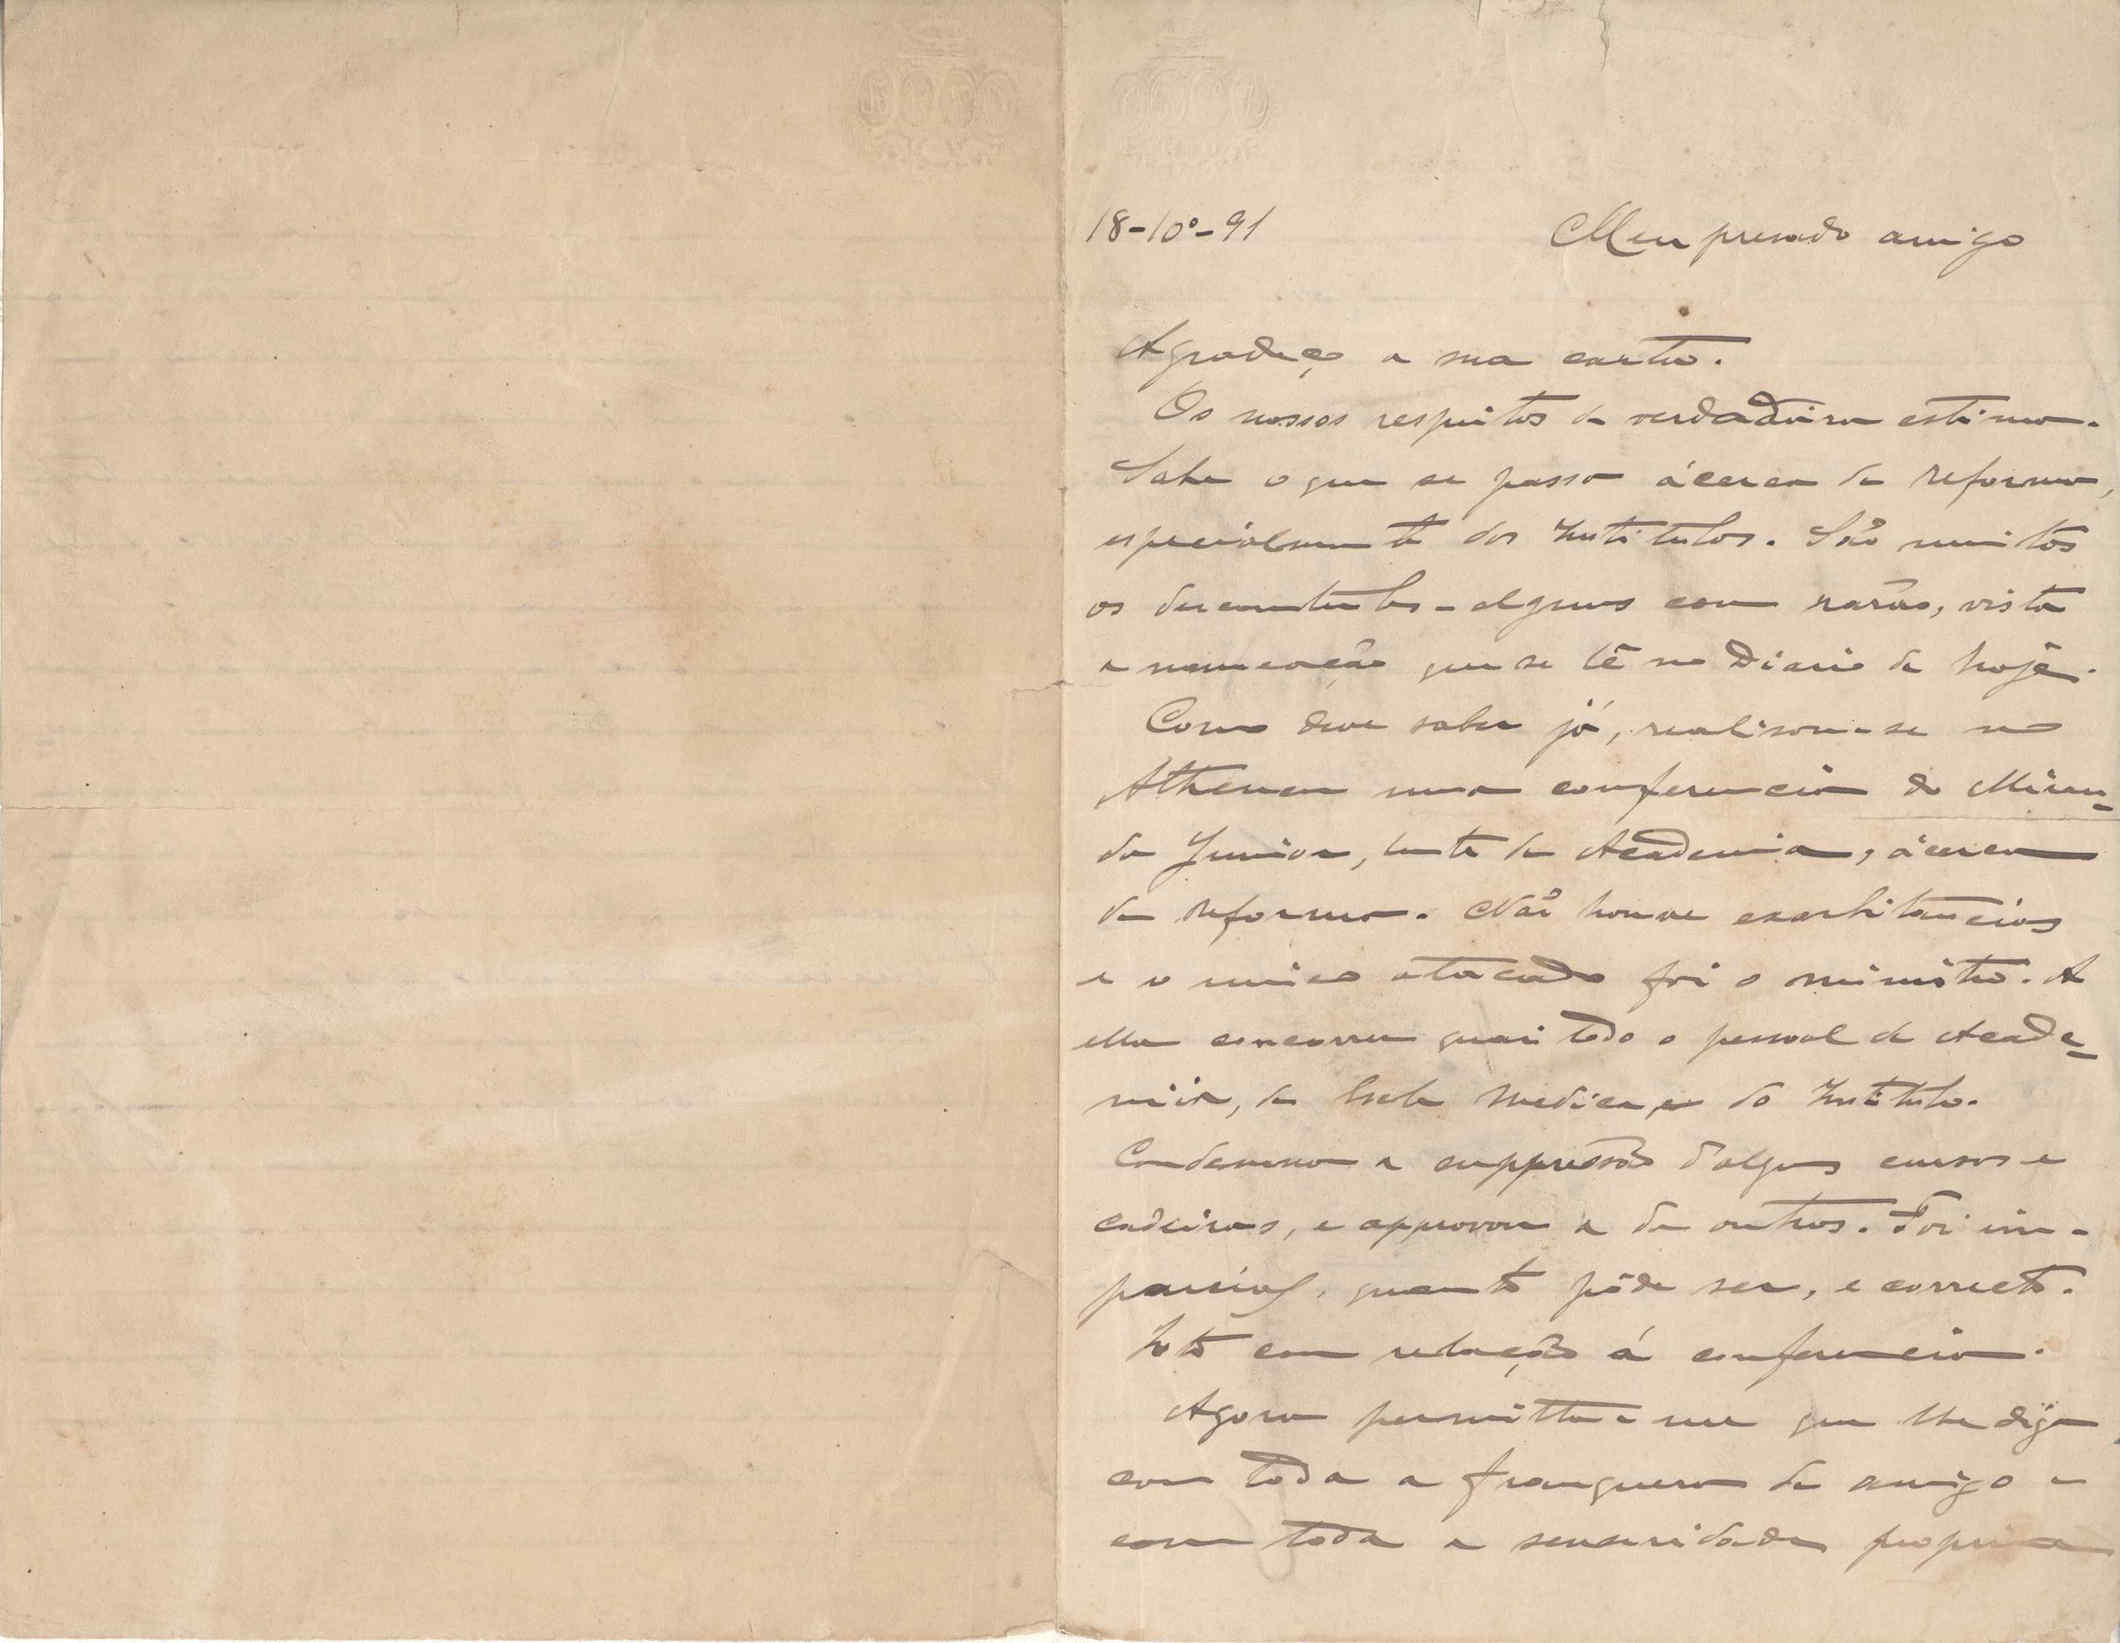 18-10º-91
Meu presado amigo
Agradeço a sua carta.
Os nossos respeitos de verdadeira estima.
Sabe o que se passa ácerca da reforma,
especialmente dos Institutos. São muitos
os descontentes - alguns com rasão, vista
a nomeação que se lê no Diario de hoje.
Como deve saber já, realisou-se no
Atheneu uma conferencia do Miran-
da Junior, lente da Academia, ácerca
da reforma. Não houve exorbitancias
e o unico atacado foi o ministro. A
ella concorreu quasi todo o pessoal da Acade-
mia, da Escola Medica e do Instituto.
Condemnou a suppressão d'alguns cursos e
cadeiras, e approvou a de outros. Foi im-
parcial, quanto póde ser, e correcto.
Isto com relação á conferencia.
Agora permitta-me que lhe diga,
com toda a franquesa de amigo e
com toda a sinceridade propria